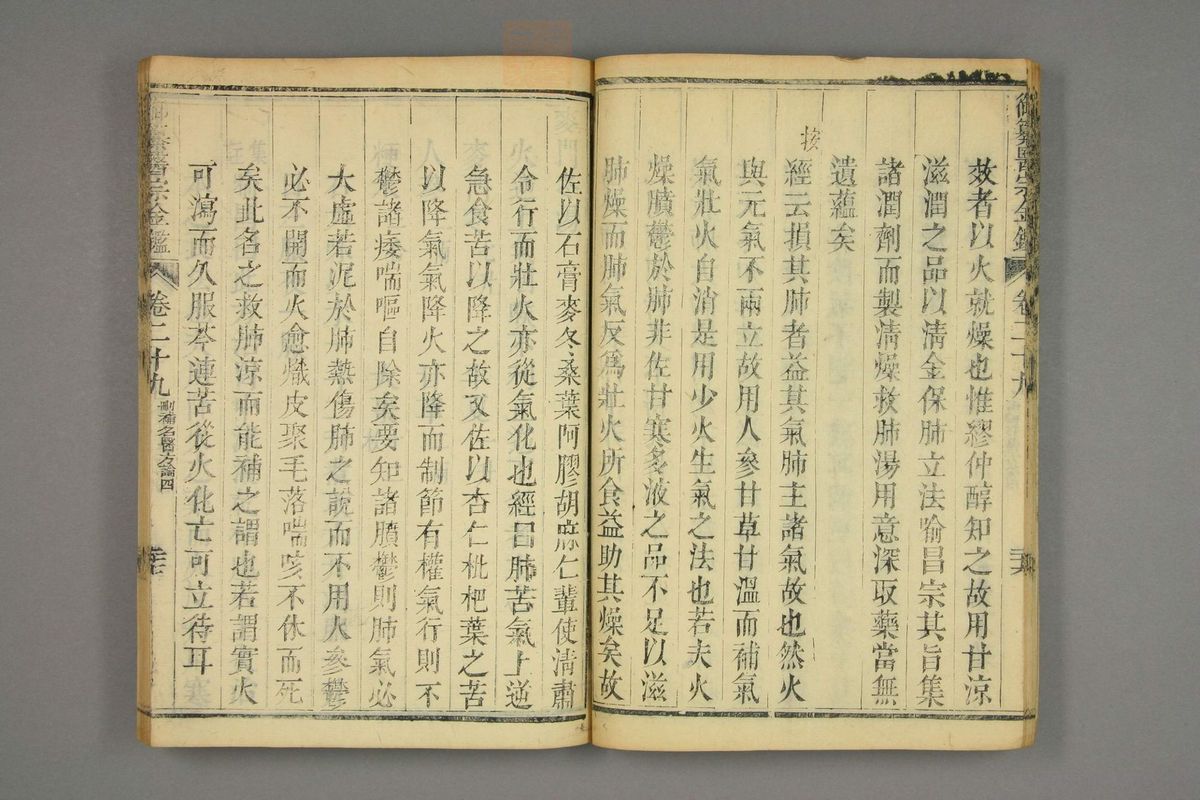 御纂醫宗金鑑 卷二十九
效者以火就燥也惟繆仲醇知之故用甘涼
滋潤之品以清金保肺立法喻昌宗其旨集
諸潤劑而製清燥救肺湯用意深取藥當無
遺蘊矣
按
經云損其肺者益其氣肺主諸氣故也然火
與元氣不兩立故用人參甘草甘溫而補氣
氣壯火自消是用少火生氣之法也若夫火
燥膹鬱於肺非佐甘寒多液之品不足以滋
肺燥而肺氣反為壯火所食益助其燥矣故
佐以石膏麥冬桑葉阿膠胡麻仁輩使清肅
令行而壯火亦從氣化也經曰肺苦氣上逆
急食苦以降之故又佐以杏仁枇杷葉之苦
以降氣氣降火亦降而制節有權氣行則不
鬱諸痿喘嘔自除矣要知諸膹鬱則肺氣必
大虛若泥於肺熱傷肺之說而不用人參鬱
必不開而火愈熾皮聚毛落喘咳不休而死
矣此名之救肺涼而能補之謂也若謂實火
可瀉而久服芩連苦從火化亡可立待耳
御纂醫宗金鑑 卷二十九 刪補名醫方論四